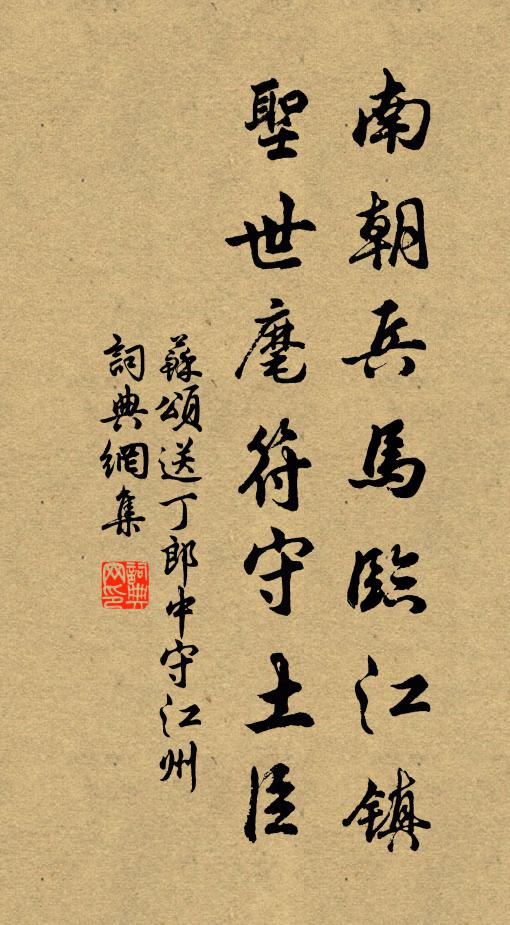 南朝兵馬臨江鎮
聖世麾符守土臣
蘇頌送丁郎中守江州
詞典網集
詞典网印